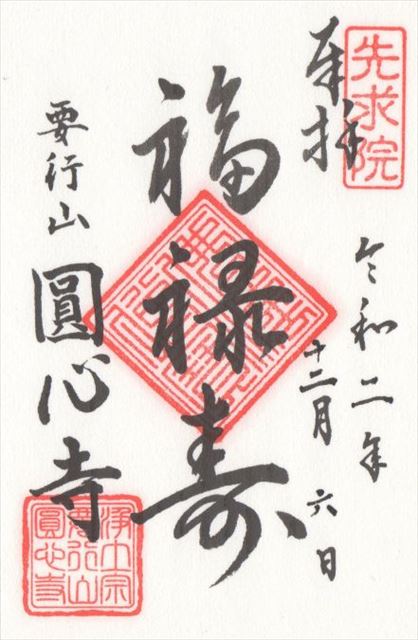 先求院
奉拝
令和二年
十二月六日
福禄寿
要行山
圓心寺
浄土宗
要行山
圓心寺